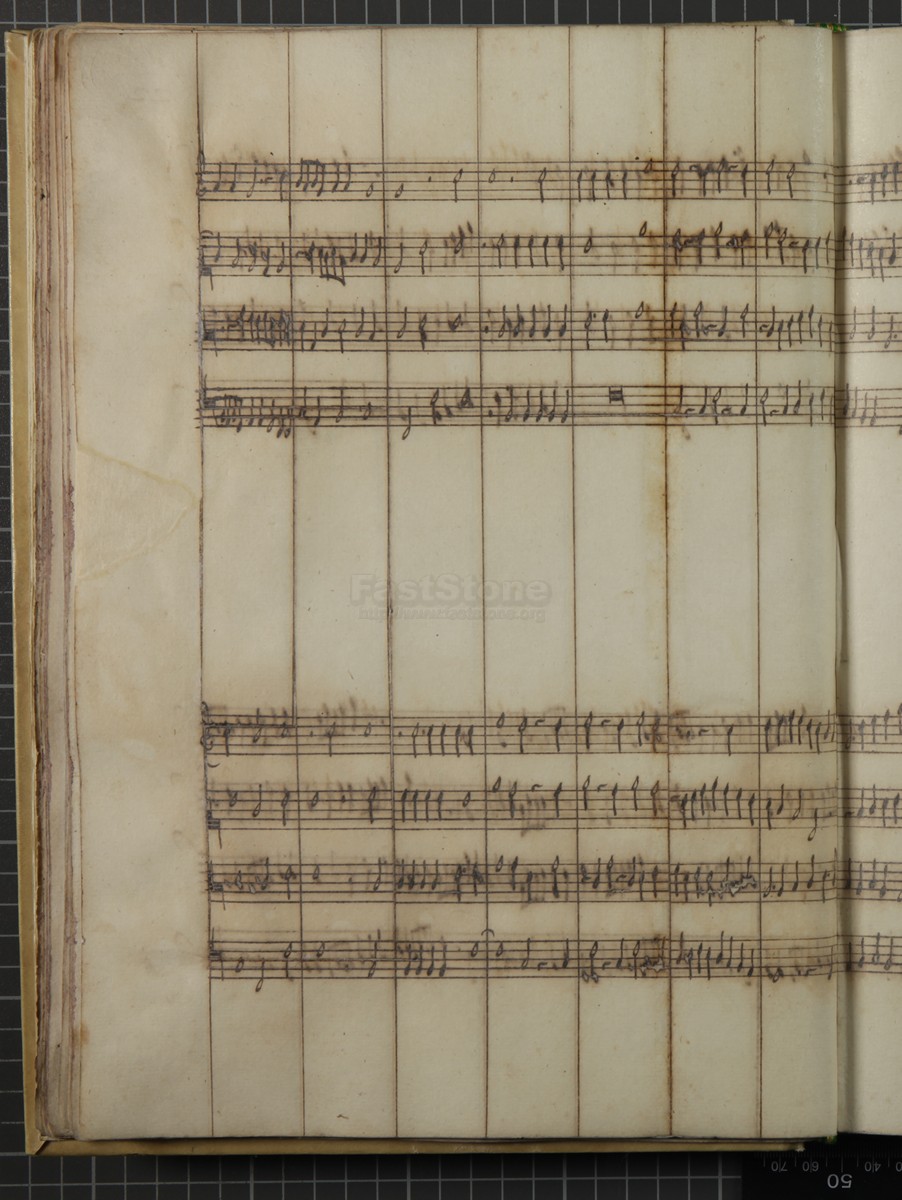 FastStone
http://www.faststone.org
70 60 40
50